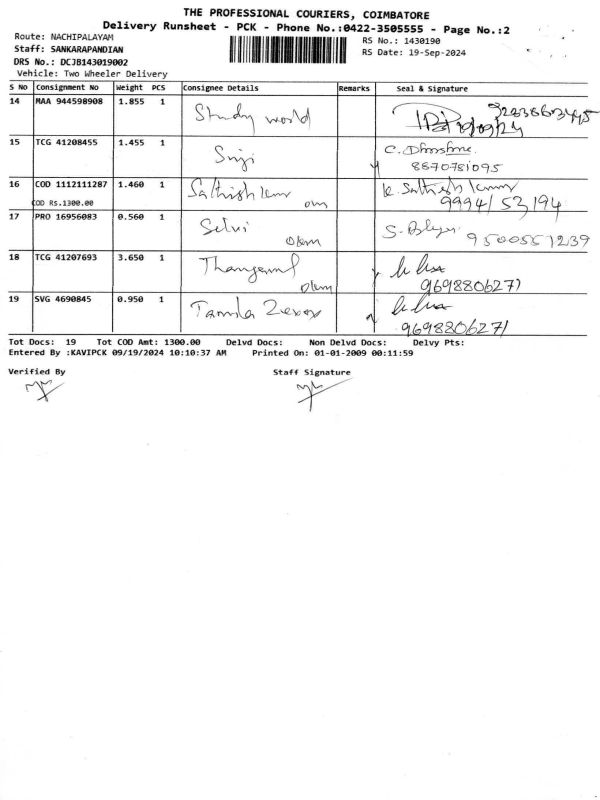 THE PROFESSIONAL COURIERS, COIMBATORE
Delivery Runsheet - PCK - Phone No.:0422-3505555 - Page No.:2
Route: NACHIPALAYAM
RS No.: 1430190
Staff: SANKARAPANDIAN
RS Date: 19-Sep-2024
DRS No.: DCJB143019002
Vehicle: Two Wheeler Delivery
S No Consignment No Weight PCS Consignee Details Remarks Seal & Signature
14 MAA 944598908 1.855 1 Study world
15 TCG 41208455 1.455 1 C.
8870781095
16 COD 1112111287 1.460 1 Sathish kumar K. Sathish kumar
COD Rs.1300.00 9994153194
17 PRO 16956083 0.560 1 Selvi S.
9500551239
18 TCG 41207693 3.650 1
9698806271
19 SVG 4690845 0.950 1 Tamila Zerox
9698806271
Tot Docs: 19 Tot COD Amt: 1300.00 Delvd Docs: Non Delvd Docs: Delvy Pts:
Entered By :KAVIPCK 09/19/2024 10:10:37 AM Printed On: 01-01-2009 00:11:59
Verified By Staff Signature